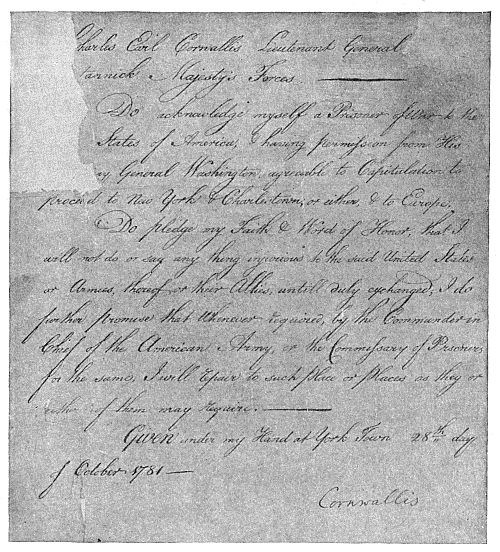 Charles Earl Cornwallis Lieutenant General
annick Majesty's Forces. ———
Do acknowledge myself a Prisoner of War to the
States of America, & having permission from His
y General Washington, agreeable to Capitulation to
proceed to New York & Charlestown, or either, & to Europe.
Do pledge my Faith & Word of Honor, that I
will not do or say any thing injurious to the said United States
or Armies, thereof, or their Allies, untill duly exchanged, I do
further promise that whenever required, by the Commander in
Chief of the American Army, or the Commissary of Prisoners
for the same, I will repair to such place or places as they or
either of them may require. ———
Given under my Hand at York Town 28th day
of October 1781 —
Cornwallis